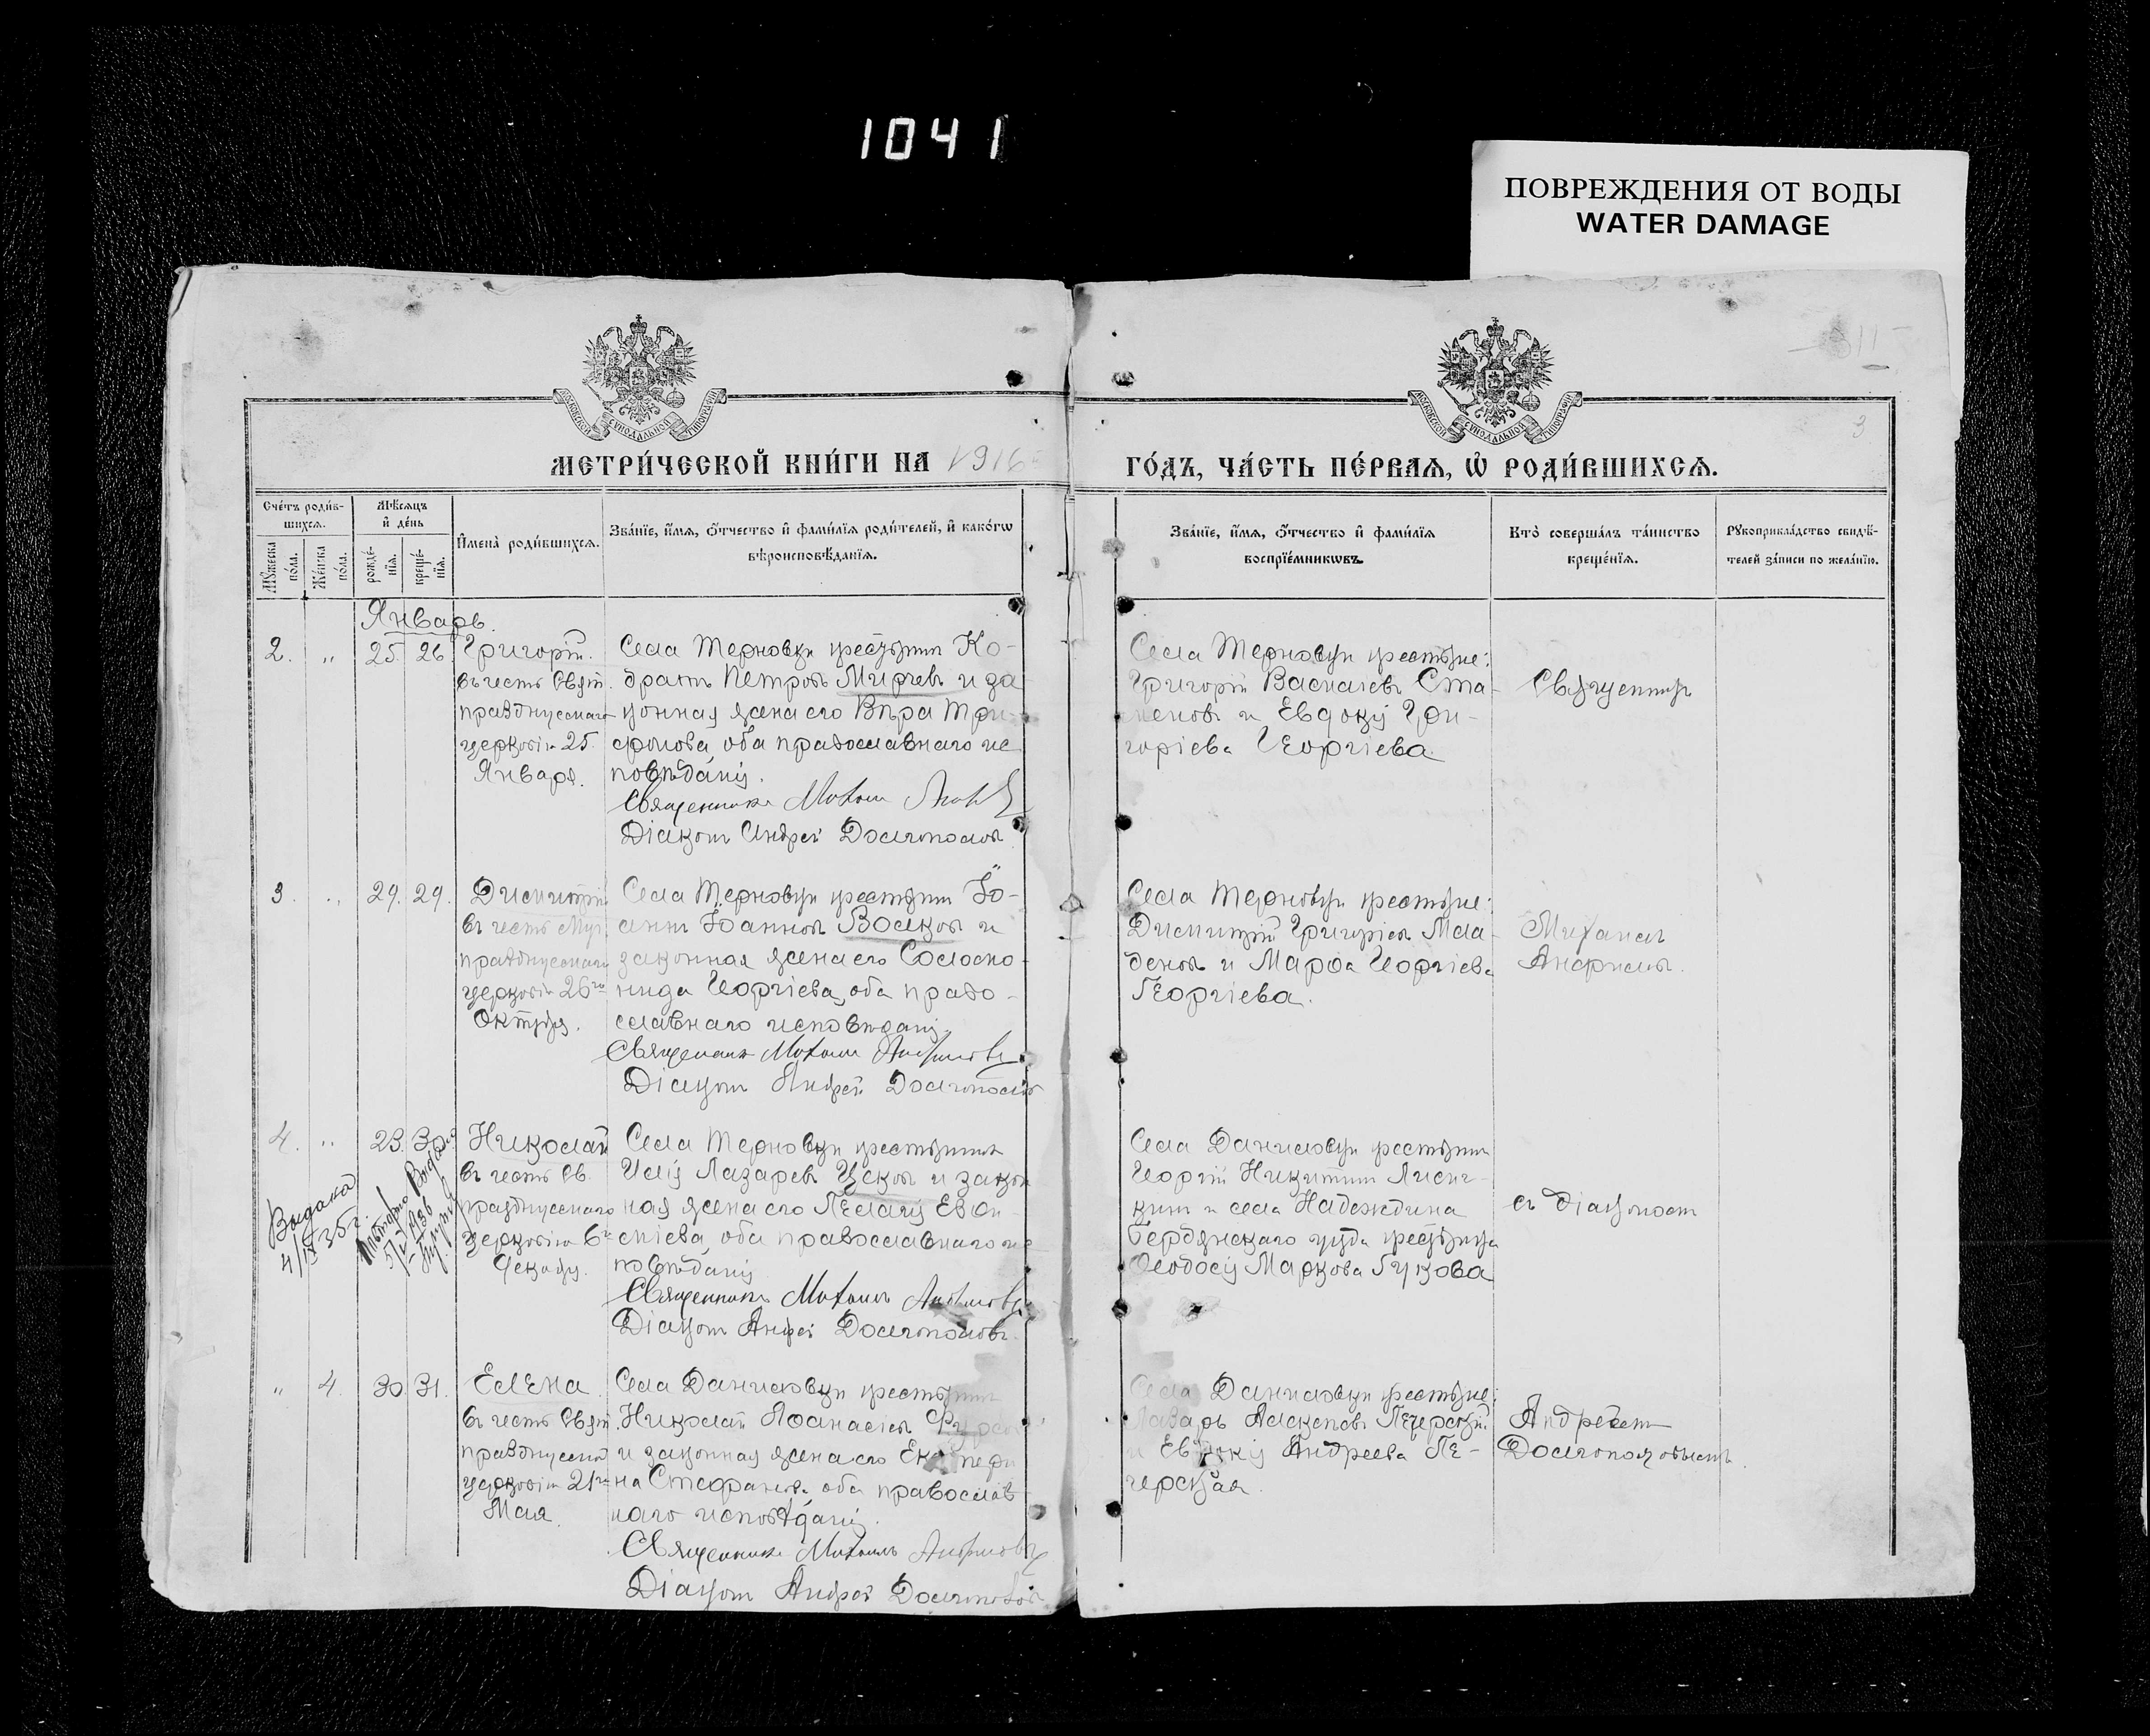 1041
ПОВРЕЖДЕНИЯ ОТ ВОДЫ
WATER DAMAGE
11
3
МОСКОВСКОЙ СѴНОДАЛЬНОЙ ТИПОГРАФІИ
МОСКОВСКОЙ СѴНОДАЛЬНОЙ ТИПОГРАФІИ
МЕТРИ́ЧЕСКОЙ КНИ́ГИ НА 1916
ГО́ДЪ, ЧА́СТЬ ПЕ́РВАѦ, Ѡ҆ РОДИ́ВШИХСѦ.
Сче́тъ роди́в-
шихсѧ.
Мѣ́сѧцъ
и҆ де́нь
Мꙋ́жеска по́ла.
Же́нска по́ла.
рожде́-
нїѧ.
креще́-
нїѧ.
И҆мена̀ роди́вшихсѧ.
Зва́нїе, и҆́мѧ, ѻ҆́тчество и҆ фами́лїѧ роди́телей, и҆ како́гѡ
вѣроисповѣ́данїѧ.
Зва́нїе, и҆́мѧ, ѻ҆́тчество и҆ фами́лїѧ
воспрїе́мникѡвъ.
Кто̀ соверша́лъ та́инство
креще́нїѧ.
Рꙋкоприкла́дство свидѣ́-
телей за́писи по жела́нїю.
Январь.
2. „ 25. 26. Григорій.
въ честь Свят.
празднуемаго
церковію 25.
Января.
Села Терновки крестьянинъ Ко-
дратъ Петровъ Мирчевъ и за
конная жена его Вѣра Три-
фонова, оба православнаго ис
повѣданія.
Священникъ Михаилъ
Діаконъ Андрей Долгополовъ
Села Терновки крестьяне:
Григорій Васильевъ Ста-
меновъ и Евдокія Гри-
горіева Георгіева.
Священникъ
3. „ 29. 29. Димитрій
въ честь Муч.
празднуемаго
церковію 26го
Октября.
Села Терновки крестьянинъ Іо-
аннъ Іоанновъ Волковъ и
законная жена его Соломо-
нида Георгіева, оба право-
славнаго исповѣданія.
Священникъ Михаилъ Анфимовъ
Діаконъ Андрей Долгополовъ
Села Терновки крестьяне:
Димитрій Григоріевъ Мла-
деновъ и Марфа Георгіева
Георгіева.
Михаилъ
Анфимовъ.
4. „ 23. 30. Николай
въ честь Св.
празднуемаго
церковію 6го
Декабря.
Выдана
35 г.
1936
Села Терновки крестьянинъ
Илія Лазаревъ Усковъ и закон
ная жена его Пелагія Евфи-
міева, оба православнаго ис
повѣданія
Священникъ Михаилъ Анфимовъ
Діаконъ Андрей Долгополовъ.
Села Даниловки крестьянинъ
Георгій Никитинъ Лисич-
кинъ и села Надеждина
Бердянскаго уѣзда крестьянка
Феодосія Маркова Гукова
съ діакономъ
„ 4. 30. 31. Елена.
въ честь Свят.
празднуемой
церковію 21го
Мая.
Села Даниловки крестьянинъ
Николай Афанасіевъ
и законная жена его Екатери
на Стефанова, оба православ
наго исповѣданія.
Священникъ Михаилъ Анфимовъ
Діаконъ Андрей Долгополовъ
Села Даниловки крестьяне:
Лазарь Печерскій
и Евдокія Андреева Пе-
черская.
Андреемъ
Долгополовымъ.